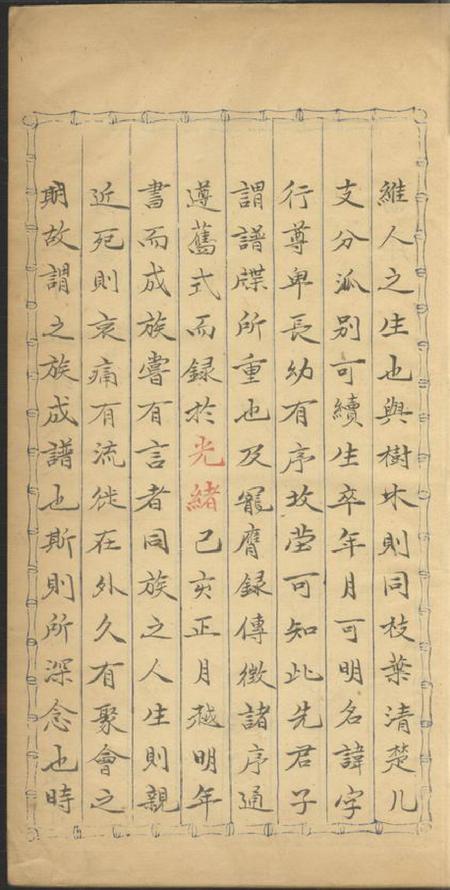 維人之生也與樹木則同枝葉清楚凡
支分派別可續生卒年月可明名諱字
行尊卑長幼有序坟茔可知此先君子
謂譜牒所重也及寵膺録傳徴諸序通
遵舊式而録於光緒己亥正月越明年
書而成族嘗有言者同族之人生則親
近死則哀痛有流徙在外久有聚會之
期故謂之族成譜也斯則所深念也時